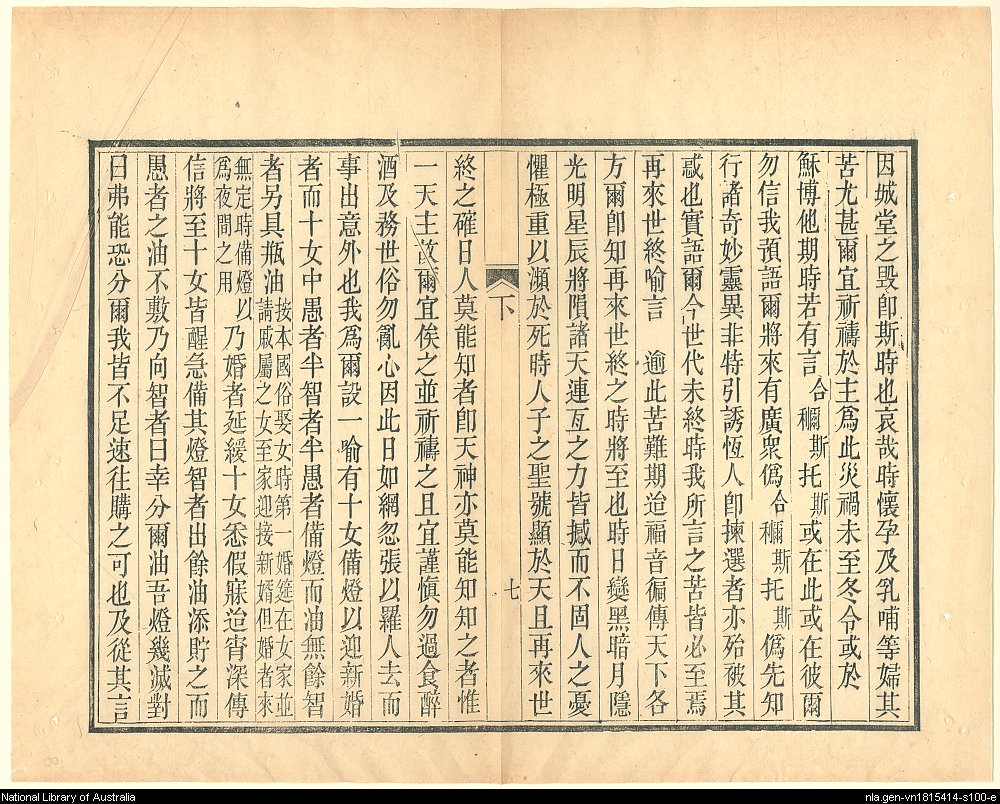 因城堂之毀卽斯時也哀哉時懷孕及乳哺等婦其
苦尤甚爾宜祈禱於主爲此災禍未至冬令或於
穌博他期時若有言合穪斯托斯或在此或在彼爾
勿信我預語爾將來有廣衆僞合穪斯托斯僞先知
行諸奇妙靈異非特引誘恆人卽揀選者亦殆被其
惑也實語爾今世代未終時我所言之苦皆必至焉
再來世終喻言　逾此苦難期迨福音徧傳天下各
方爾卽知再來世終之時將至也時日變黑暗月隱
光明星辰將隕諸天連亙之力皆撼而不固人之憂
懼極重以瀕於死時人子之聖號顯於天且再來世
下　七
終之確日人莫能知者卽天神亦莫能知知之者惟
一天主故爾宜俟之並祈禱之且宜謹愼勿過食醉
酒及務世俗勿亂心因此日如網忽張以羅人去而
事出意外也我爲爾設一喻有十女備燈以迎新婚
者而十女中愚者半智者半愚者備燈而油無餘智
者另具瓶油按本國俗娶女時第一婚筵在女家並請戚屬之女至家迎接新婿但婚者來
無定時備燈以爲夜間之用乃婚者延緩十女悉假寐迨宵深傳
信將至十女皆醒急備其燈智者出餘油添貯之而
愚者之油不敷乃向智者曰幸分爾油吾燈幾滅對
曰弗能恐分爾我皆不足速往購之可也及從其言
National Library of Australia
nla.gen-vn1815414-s100-e